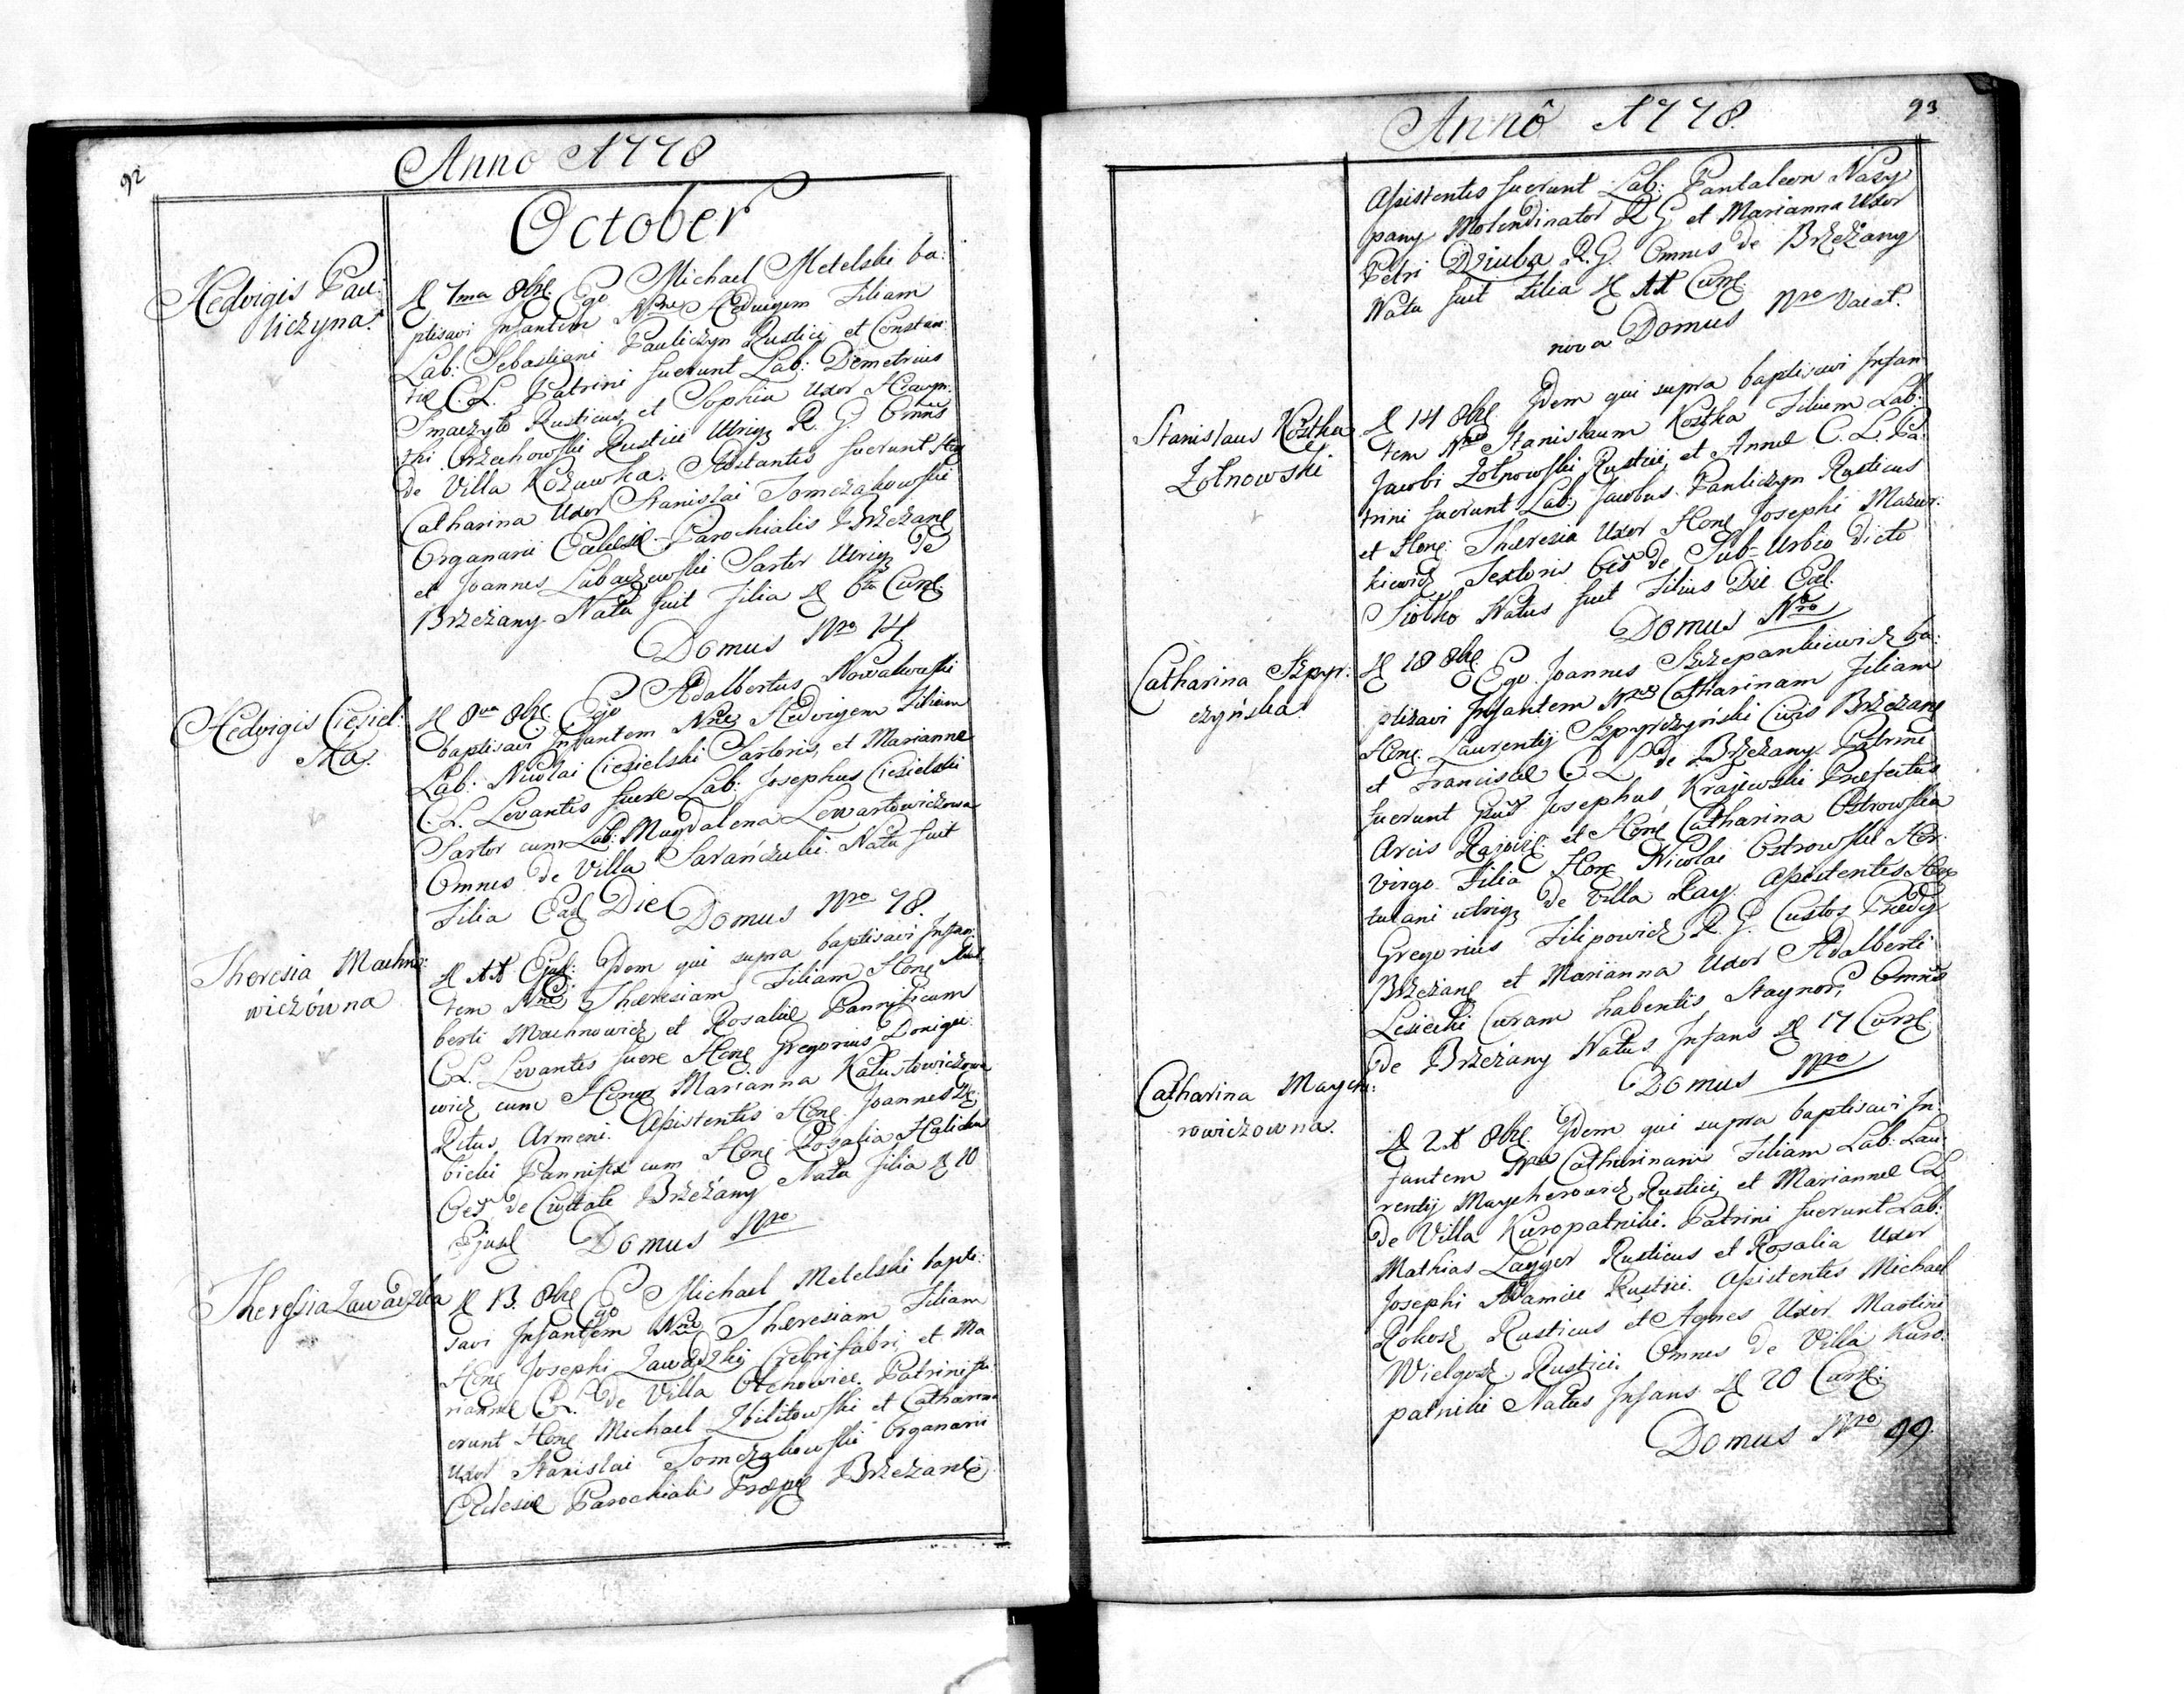 92
Anno 1778
October
Hedvigis Pau:
liczyna.
D 7ma 8bris Ego Michael Metelski ba:
ptisavi Infantem Nne Hedvigem Filiam
Lab: Sebastiani Pauliczyn Rustici et Constan:
tiæ C. L. Patrini fuerunt Lab: Demetrius
Smaczyło Rusticus et Sophia Uxor
Orzechowski Rustici Utriq R. G. Omnes
de Villa Kozuwka. Astantes fuerunt
Catharina Uxor Stanislai Tomczakowski
Organarii Ecclesiæ Parochialis Brzezanæ
et Joannes Labaczewski Sartor Utriq de
Brzeżany Nata fuit Filia D 6ta Curr
Domus Nro 14.
Hedvigis Ciesiel:
ska.
D 8va 8bris Ego Adalbertus Nowakowski
baptisavi Infantem Nne Hedvigem Filiam
Lab: Nicolai Ciesielski Sartoris, et Mariannæ
C. L. Levantes fuere Lab: Josephus Ciesielski
Sartor cum Lab: Magdalena Lewartowiczowa
Omnes de Villa Saranczuki Nata fuit
Filia Ead Die Domus Nro 78.
Theresia Machno:
wiczówna
D 11 Ejusd: Idem qui supra baptisavi Infan:
tem Nne Theresiam Filiam Hone Adal
berti Machnowicz et Rosaliæ Pannificum
C. L. Levantes fuere Hone Gregorius Donigie
wicz cum Hone Marianna Katustowiczowa
Ritus Armeni. Assistentes Hone Joannes
bicki Pannifex cum Hone Rosalia Halicka
Oes de Civitate Brzeżany Nata Filia D 10
Ejusd Domus Nro
Theressia Zawadzka
D 13. 8bris Ego Michael Metelski bapti:
savi Infantem Nne Theresiam Filiam
Hone Josephi Zawadzki Cribrifabri, et Ma
riannæ C. L. de Villa Olchowice. Patrini fu:
erunt Hone Michael Zbilitowski et Catharina
Uxor Stanislai Tomczakowski Organarii
Eclesiæ Parochialis Brzezanæ
Annô 1778.
93
Assistentes fuerunt Lab: Pantaleon Nasy
pany Molendinator R G et Marianna Uxor
Petri Dziuba R. G. Omnes de Brzeżany
Nata fuit Filia D 11 Curr
nova Domus Nro vacat.
Stanislaus Kostka
Żołnowski
D 14 8bris Idem qui supra baptisavi Infan
tem Nne Stanislaum Kostka Filium Lab:
Jacobi Zołnowski Rustici, et Annæ C. L. Pa:
trini fuerunt Lab: Jacobus Pauliczyn Rusticus
et Hone: Theresia Uxor Hone Josephi Mazur:
kiewicz Textoris Oes de Sub-Urbio dicto
Siołko Natus fuit Filius Die Ead.
Domus Nro
Catharina Szpyr:
czyńska
D 18 8bris Ego Joannes Szczepankiewicz ba:
ptizavi Infantem Nne Catharinam Filiam
Hone Laurentij Szpyrczyński Civis Brzezane
et Franciscæ C. L. de Brzeżany Patrini
fuerunt Josephus Krajewski Præfectus
Arcis et Hone Catharina Ostrowska
Virgo Filia Hone Nicolai Ostrowski Hor:
tulani utriq de Villa Ray. Assistentes Hone
Gregorius Filipowicz R. G. Custos
Brzezane et Marianna Uxor Adalberti
Lesiecki Curam habentis Omnes
de Brzeżany Natus Infans D 17 Curr
Domus Nro
Catharina Mayche:
rowiczowna
D 21 8bris Idem qui supra baptisavi In:
fantem Nne Catharinam Filiam Lab: Lau:
rentij Maycherowicz Rustici, et Mariannæ C L
de Villa Kuropatniki. Patrini fuerunt Lab:
Mathias Layger Rusticus et Rosalia Uxor
Josephi Rustici. Assistentes Michael
Rokosz Rusticus et Agnes Uxor Martini
Wielgosz Rustici Omnes de Villa Kuro:
patniki Natus Infans D 20 Curr:
Domus Nro 99.